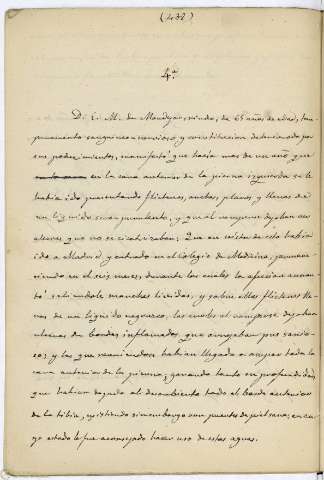 (432)
4ª
D. E. M. de Mondejar, viudo, de 65 años de edad, tem-
peramento sanguineo nervioso y constitucion deteriorada por
sus padecimientos, manifestó que hacia mas de un año que
en la cara anterior de la pierna izquierda se le
habia ido presentando flictenas, anchas, planas, y llenas de
un liquido sanguinolento, y que al romperse dejaban un
ulcera que no se cicatrizaban; Que en vista de esto habia
ido á Madrid y entrado en el Colegio de Medicina, permane-
ciendo en el seis meses, durante los cuales la afeccion aumen-
tó saliendole manchas lividas, y sobre ellas flictenas lle-
nas de un liquido negruzco, las cuales al romperse dejaban
ulceras de bordes inflamados que arrojaban pus sanio-
so; y las que reuniendose habian llegado a ocupar toda la
cara anterior de la pierna, ganando tanto en profundidad,
que habian dejado al descubierto todo el borde anterior
de la tibia, existiendo sin embargo un puente de piel sana; en cu-
yo estado le fue aconsejado hacer uso de estas aguas.